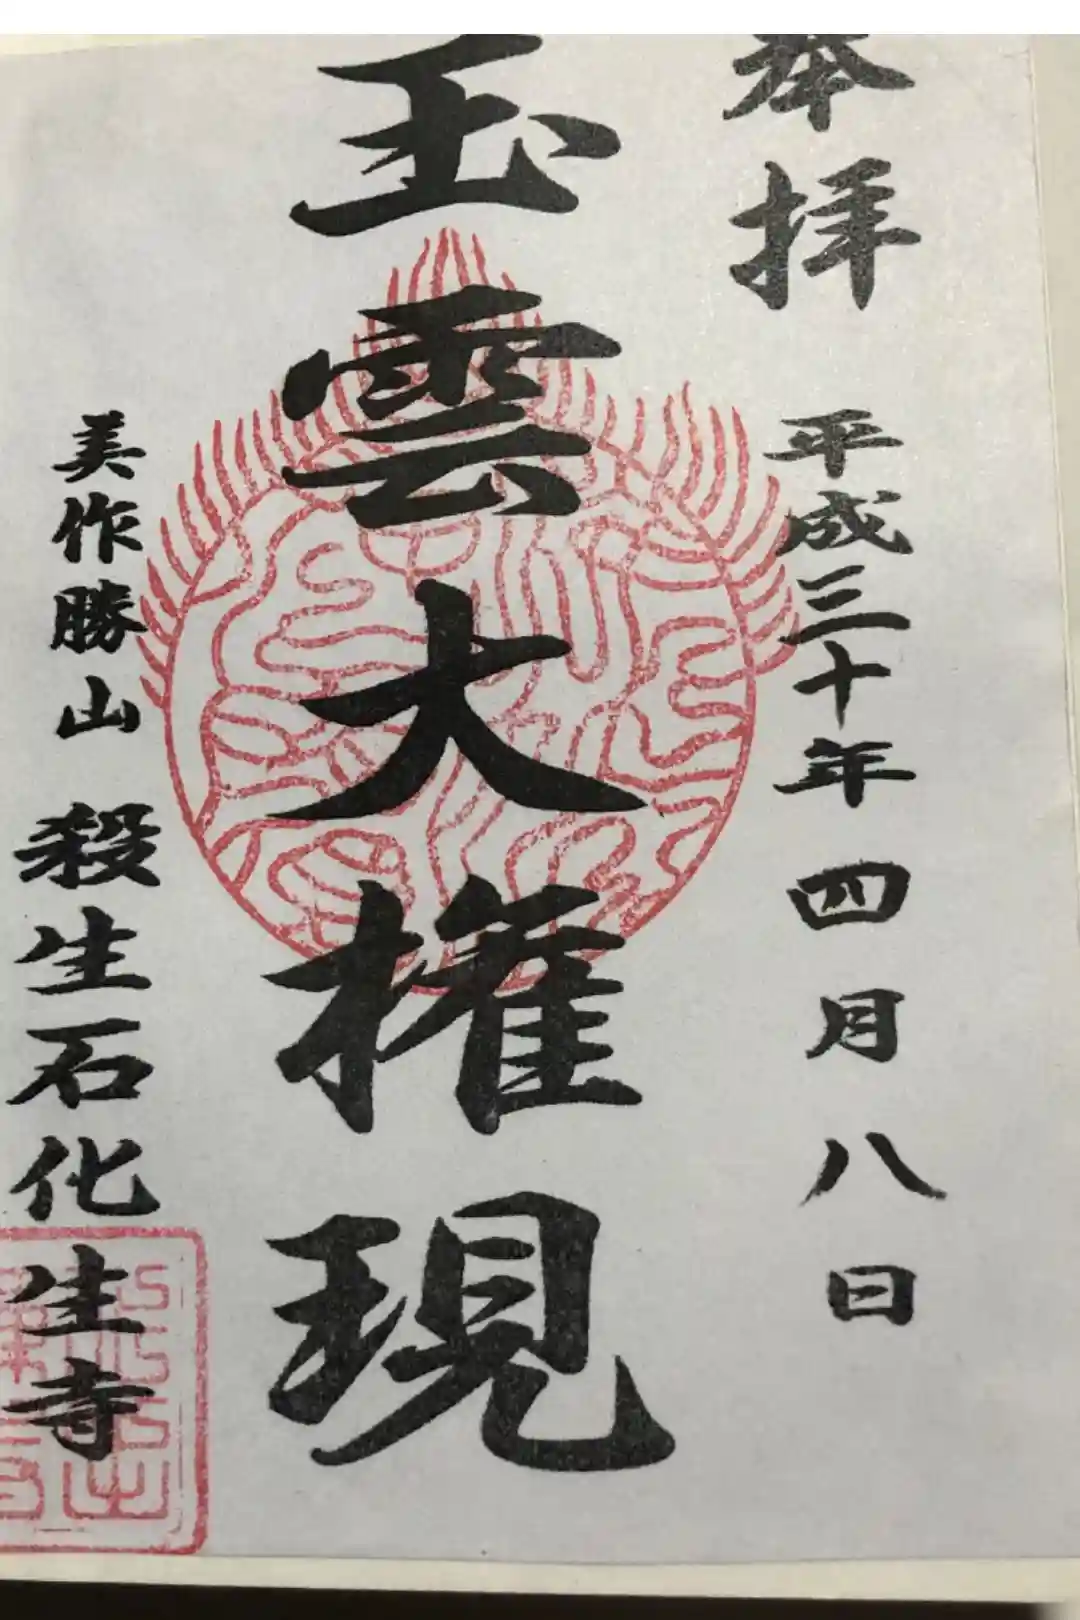 奉拝
平成三十年 四月八日
玉雲大権現
美作勝山 殺生石化生寺